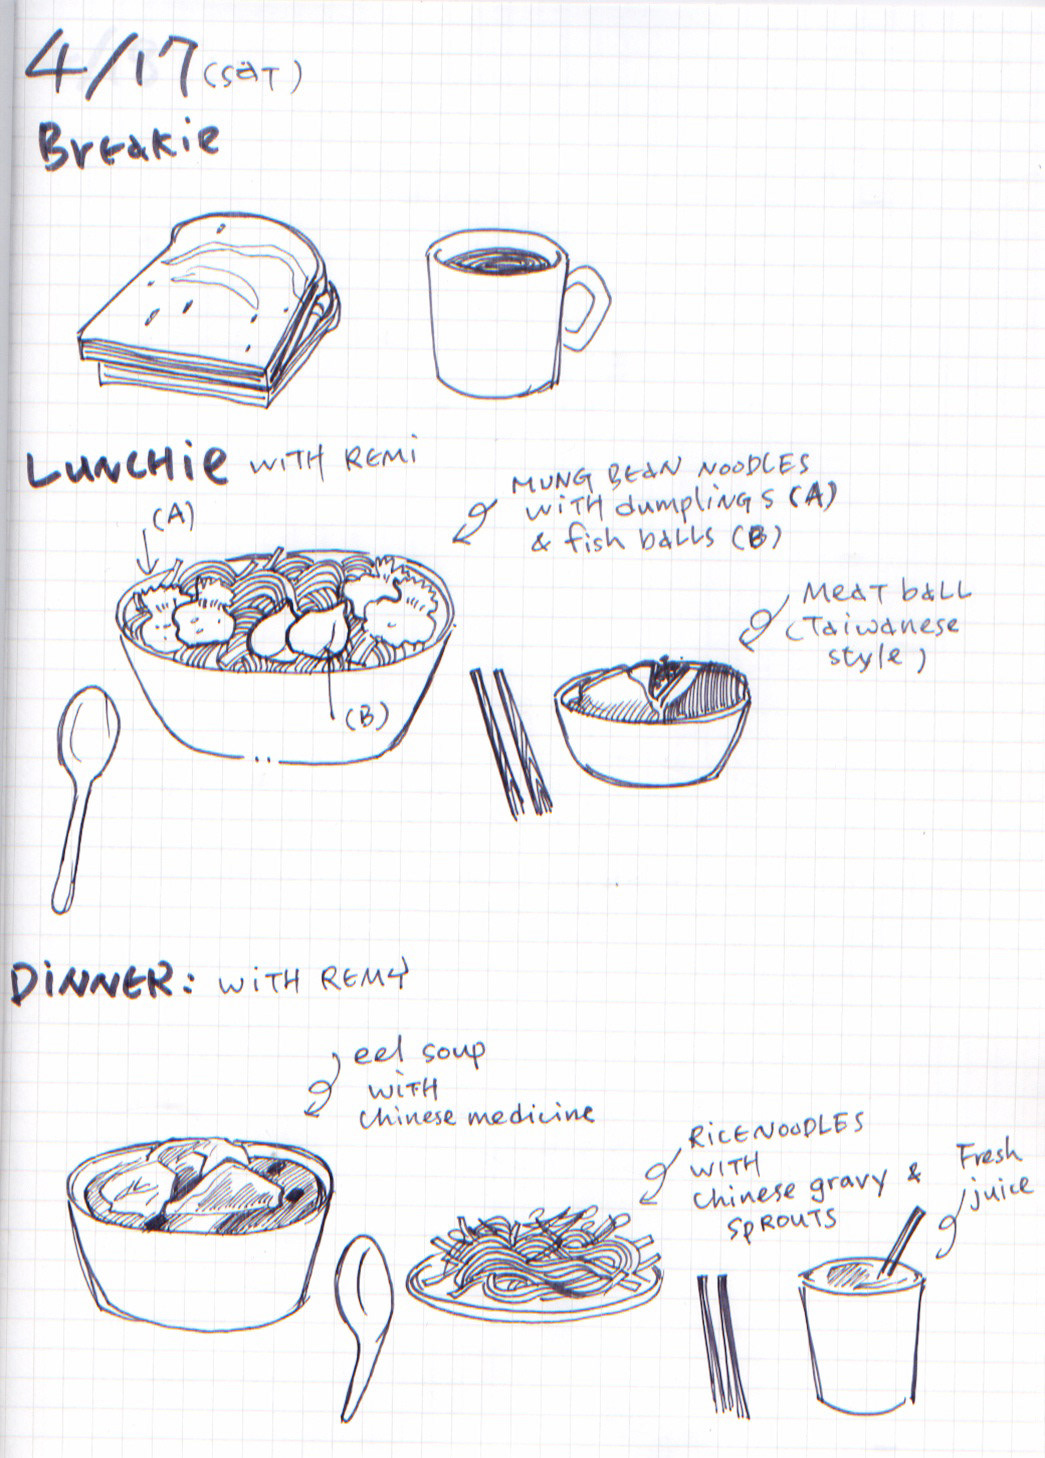 4/17 (SAT)
Breakie
LUNCHie WITH REMi
(A)
MUNG BEAN NOODLES
WiTH dumplings (A)
& fish balls (B)
Meat ball
(Taiwanese
style)
(B)
DiNNER: WiTH REMY
eel soup
WiTH
Chinese medicine
RiCE NOODLES
WiTH
Chinese gravy &
SPROUTS
Fresh
juice